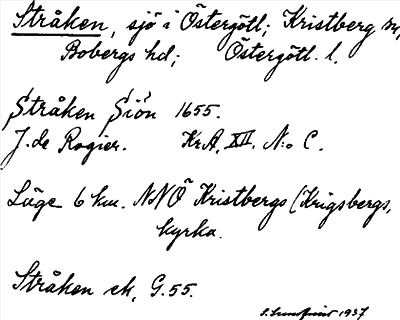 Stråken, sjö i Östergötl; Kristberg sn,
Bobergs hd; Östergötl. l.
Stråken Siön 1655.
J. de Rogier. KrA, XII. N:o C.
Läge 6 km. NNÖ Kristbergs (Krigsbergs,
kyrka.
Stråken ek, G.55.
1937